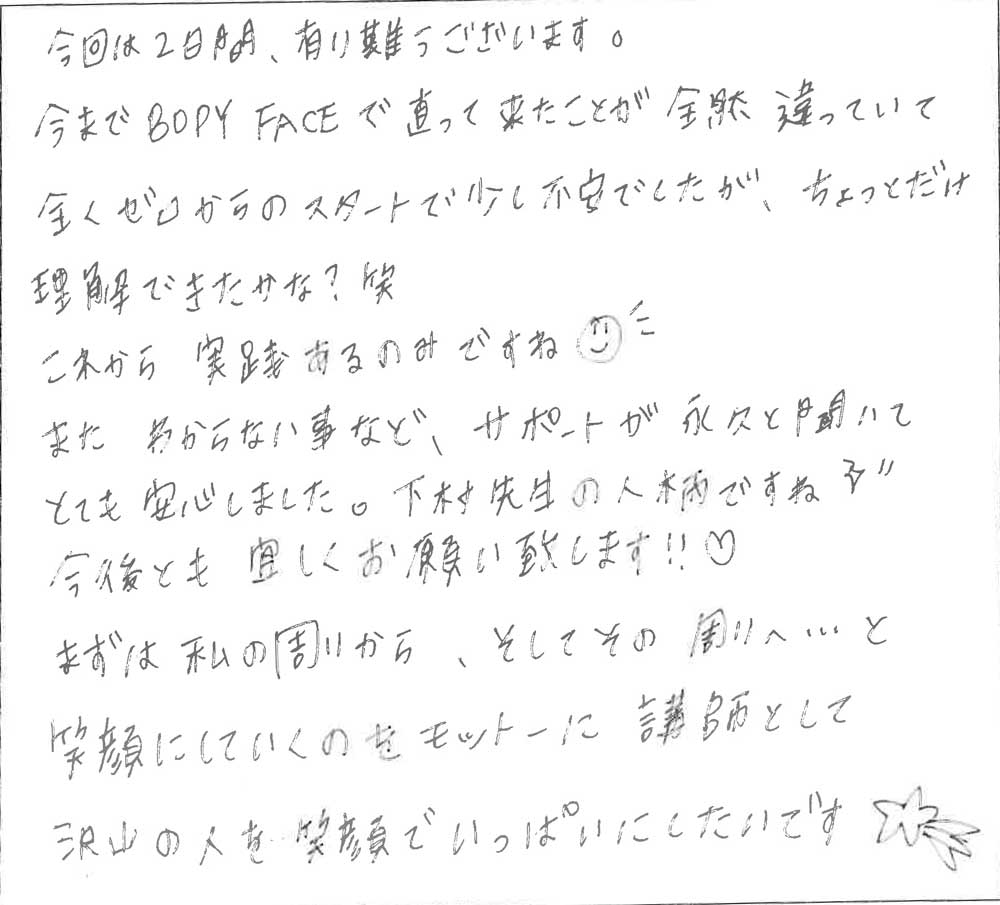 今回は2日間、有り難うございます。
今までBODY FACEで直って来たことが全然違っていて
全くゼロからのスタートで少し不安でしたが、ちょっとだけ
理解できたかな?笑
これから実践あるのみですね
また わからない事など、サポートが永久と聞いて
とても安心しました。下村先生の人柄ですね
今後とも宜しくお願い致します!!♡
まずは私の周りから、そしてその周りへ…と
笑顔にしていくのをモットーに講師として
沢山の人を笑顔でいっぱいにしたいです